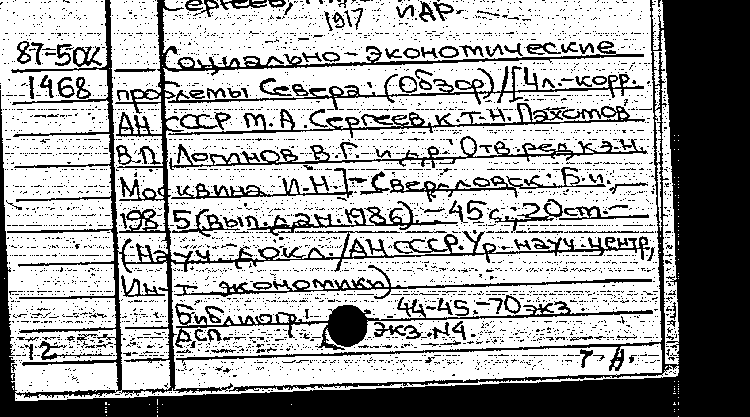 Сергеев, и др.
1917
87-50к Социально-экономические
1468 проблемы Севера: (Обзор)/[Чл.-корр.
АН СССР М.А. Сергеев, к.т.н. Пахомов
В.П., Логинов В.Г. и др.; Отв.ред. к.э.н.
Москвина И.Н.]-Свердловск: Б.и.,
1985 (вып.дан.1986).-45 с.; 20 ст.-
(Науч. докл./АН СССР. Ур. науч. центр,
Ин-т экономики).
Библиогр.: 44-45.-70 экз.
ДСП. экз. №4.
12 Т-А.